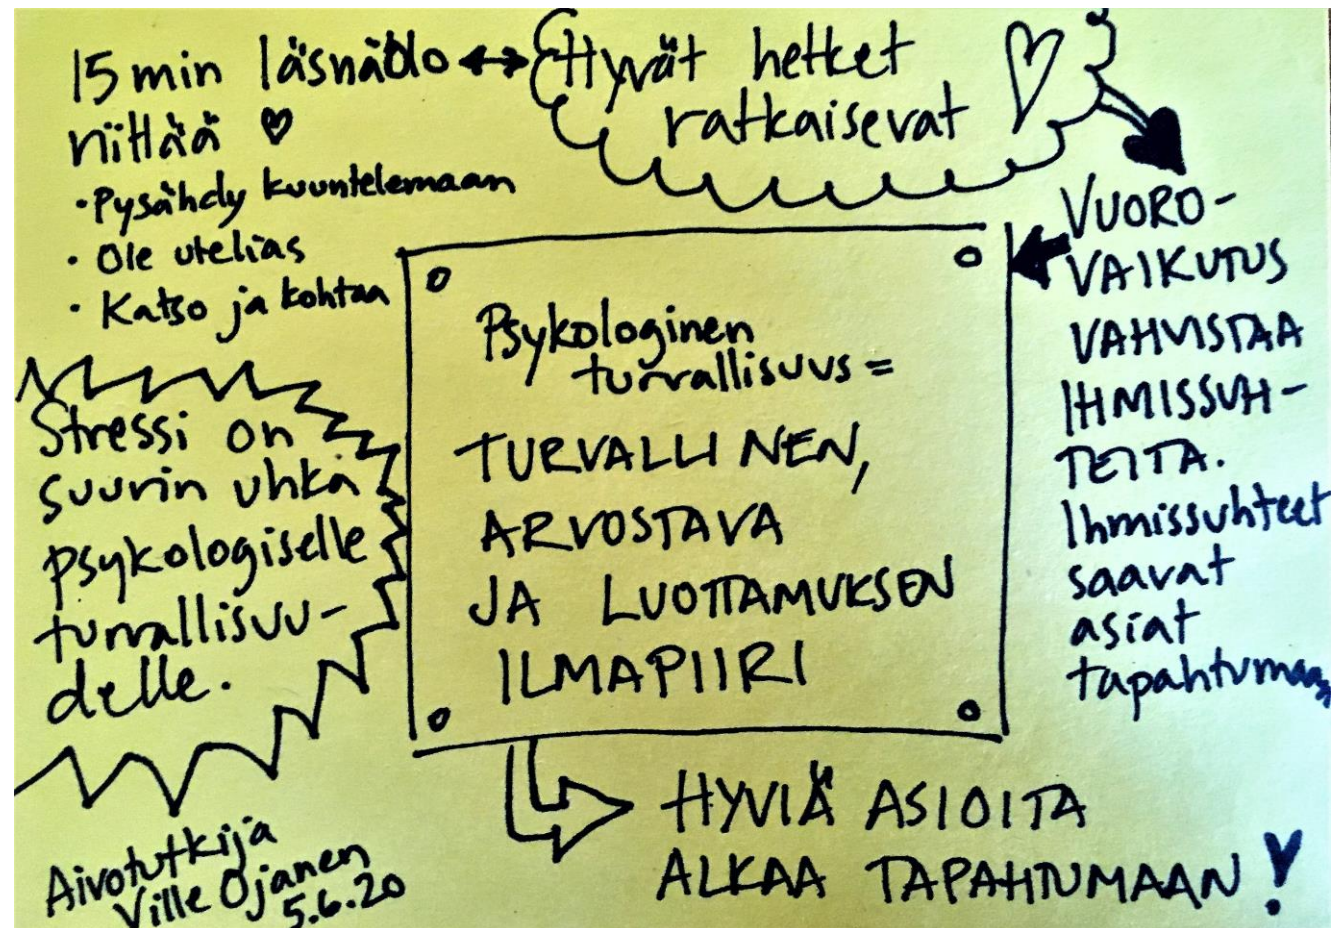 15 min läsnäolo ↔
riittää ♡
• Pysähdy kuuntelemaan
• Ole utelias
• Katso ja kohtaa
Hyvät hetket
ratkaisevat ♡
VUORO-
VAIKUTUS
VAHVISTAA
IHMISSUH-
TEITA.
Ihmissuhteet
saavat
asiat
tapahtumaan
Psykologinen
turvallisuus =
TURVALLINEN,
ARVOSTAVA
JA LUOTTAMUKSEN
ILMAPIIRI
Stressi on
suurin uhka
psykologiselle
turvallisuu-
delle.
HYVIÄ ASIOITA
ALKAA TAPAHTUMAAN!
Aivotutkija
Ville Ojanen
5.6.20